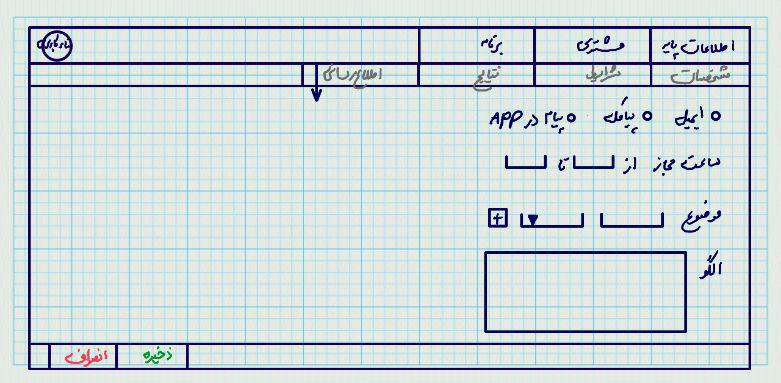 اطلاعات پایه مشتری برنامه
مشخصات شرایط نتایج اطلاع رسانی
ایمیل پیامک پیام در APP
ساعت مجاز از تا
موضوع +
الگو
ذخیره انصراف